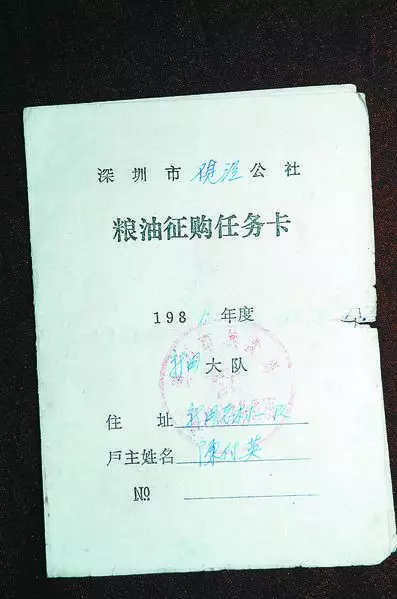 深圳市 公社
粮油征购任务卡
198 年度
新田 大队
住 址 新田
户主姓名 陈付英
№